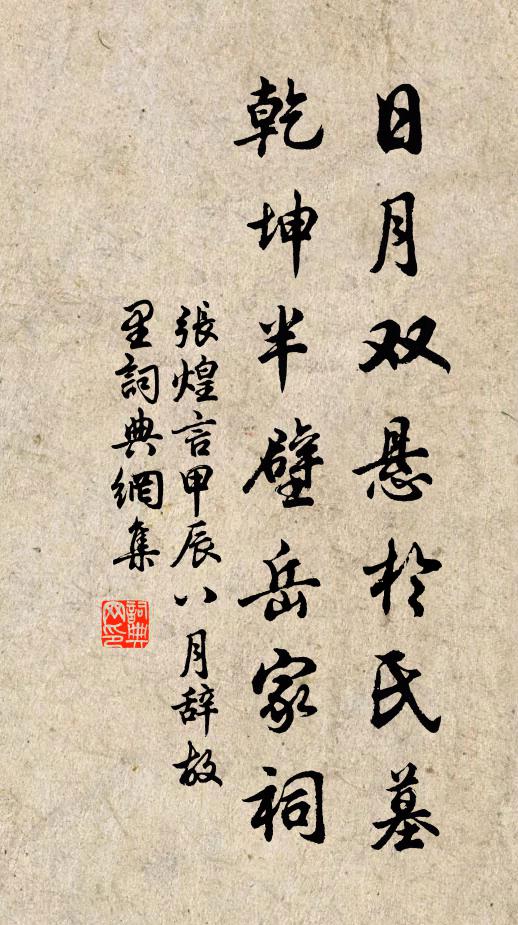 日月双悬於氏墓
乾坤半壁岳家祠
張煌言甲辰八月辞故
里詞典網集
詞典网印